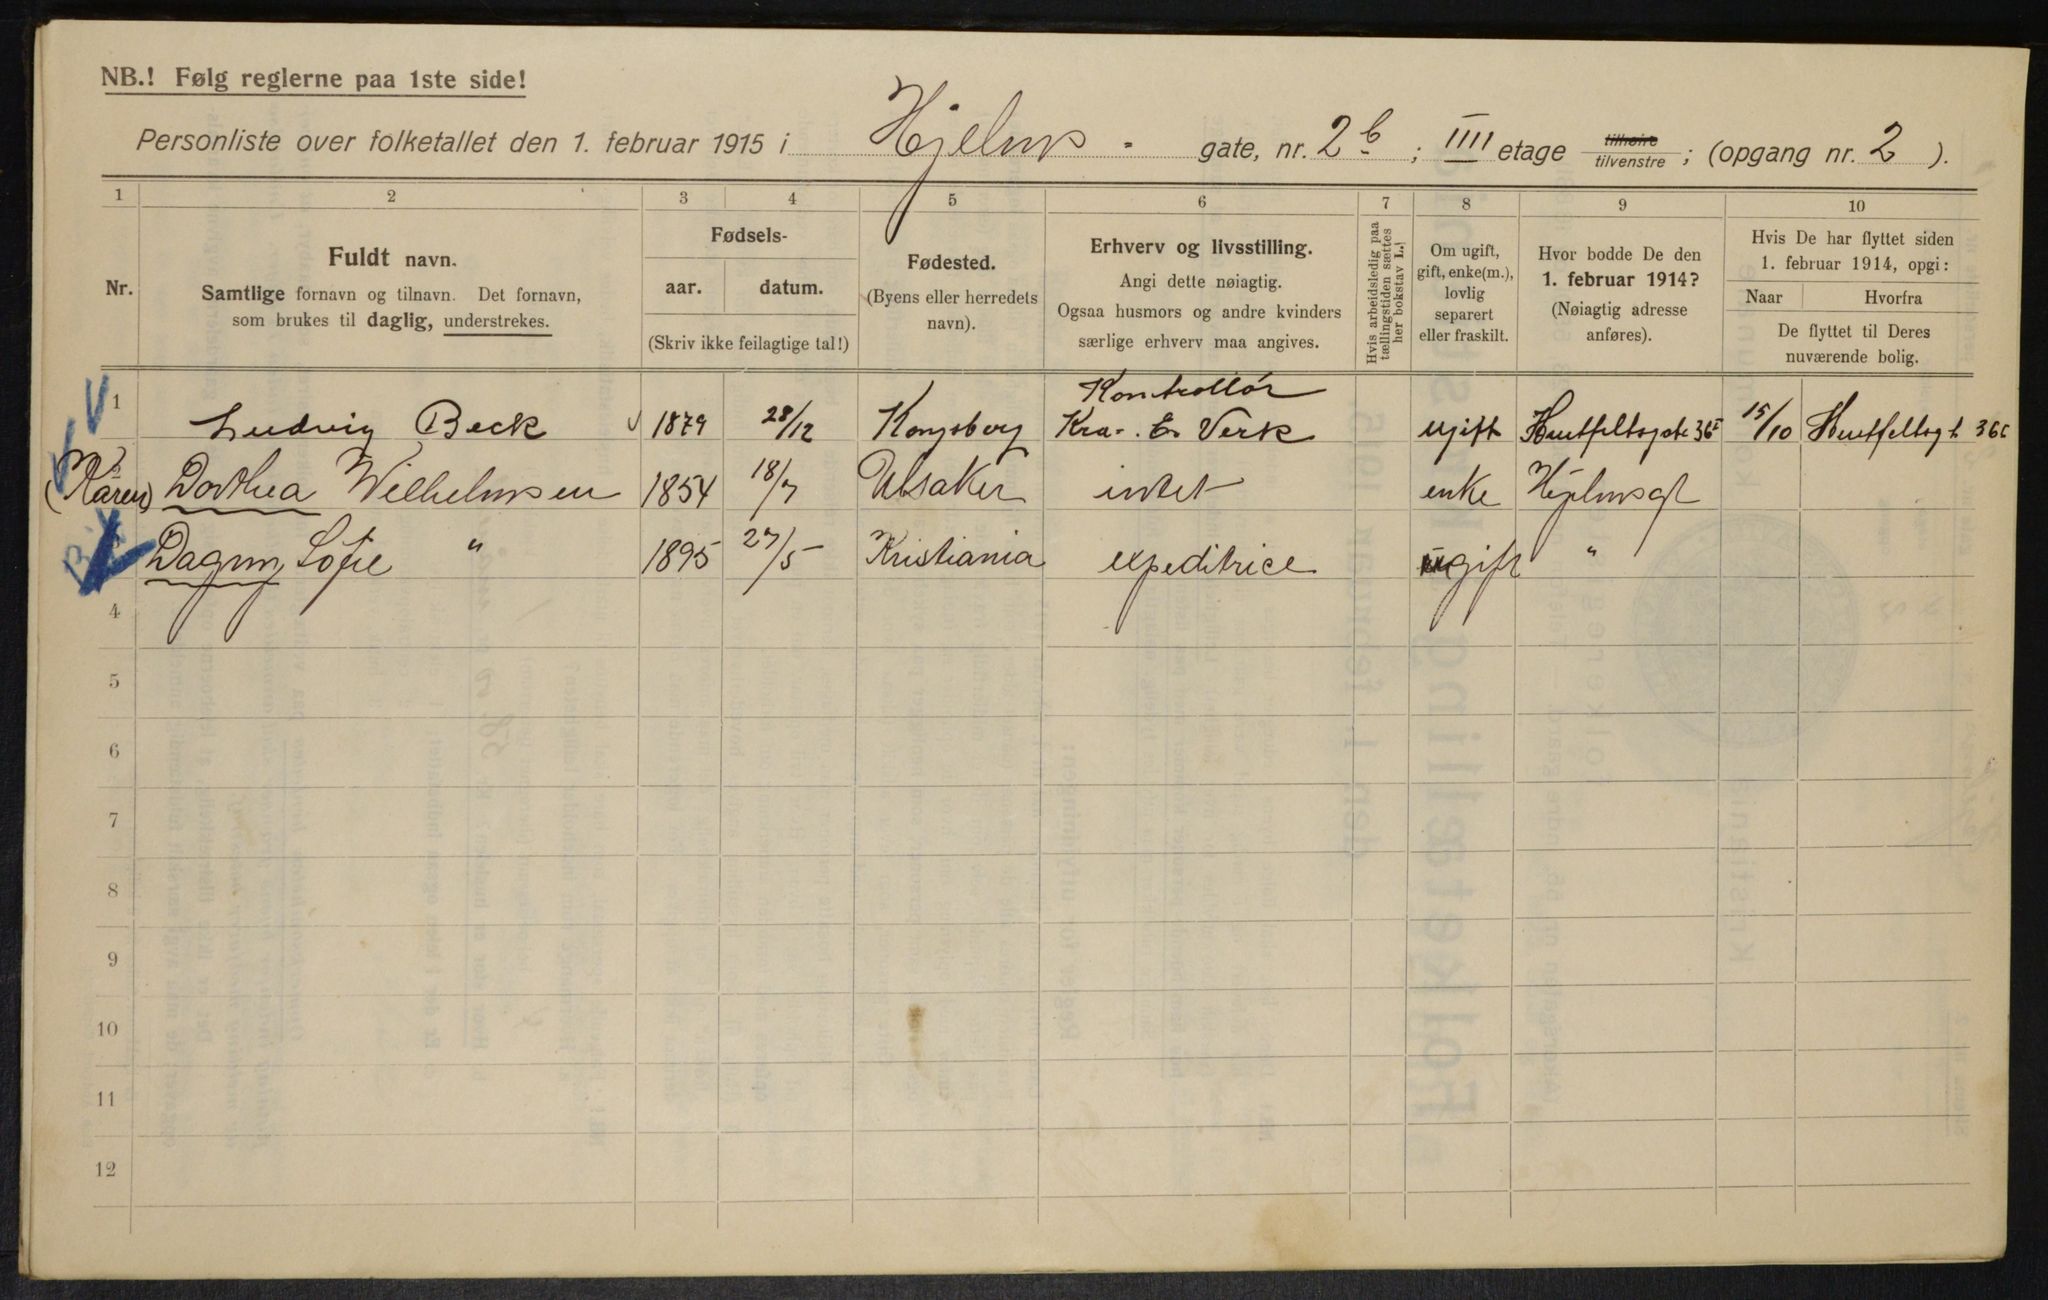 NB.! Følg reglerne paa 1ste side!
Personliste over folketallet den 1. februar 1915 i Hjelms - gate, nr. 2 b ; IIII etage tilhøire tilvenstre ; (opgang nr. 2 ).
1 2 3 4 5 6 7 8 9 10
Nr.
Fuldt navn.
Samtlige fornavn og tilnavn. Det fornavn,
som brukes til daglig, understrekes.
Fødsels-
aar. datum.
(Skriv ikke feilagtige tal!)
Fødested.
(Byens eller herredets
navn).
Erhverv og livsstilling.
Angi dette nøiagtig.
Ogsaa husmors og andre kvinders
særlige erhverv maa angives.
Hvis arbeidsledig paa
tællingstiden sættes
her bokstav L.
Om ugift,
gift, enke(m.),
lovlig
separert
eller fraskilt.
Hvor bodde De den
1. februar 1914?
(Nøiagtig adresse
anføres).
Hvis De har flyttet siden
1. februar 1914, opgi:
Naar Hvorfra
De flyttet til Deres
nuværende bolig.
Kontrollør
1 Ludvig Beck 1879 28/12 Kongsberg Kra. E. Verk ugift Huitfeltsgate 36c 15/10 Huitfeltsgt 36c
(Karen) Dorthea Wilhelmsen 1854 18/7 Ulsaker intet enke Hjelmsgt
Dagny Sofie " 1895 27/5 Kristiania expeditrice ugift "
4
5
6
7
8
9
10
11
12